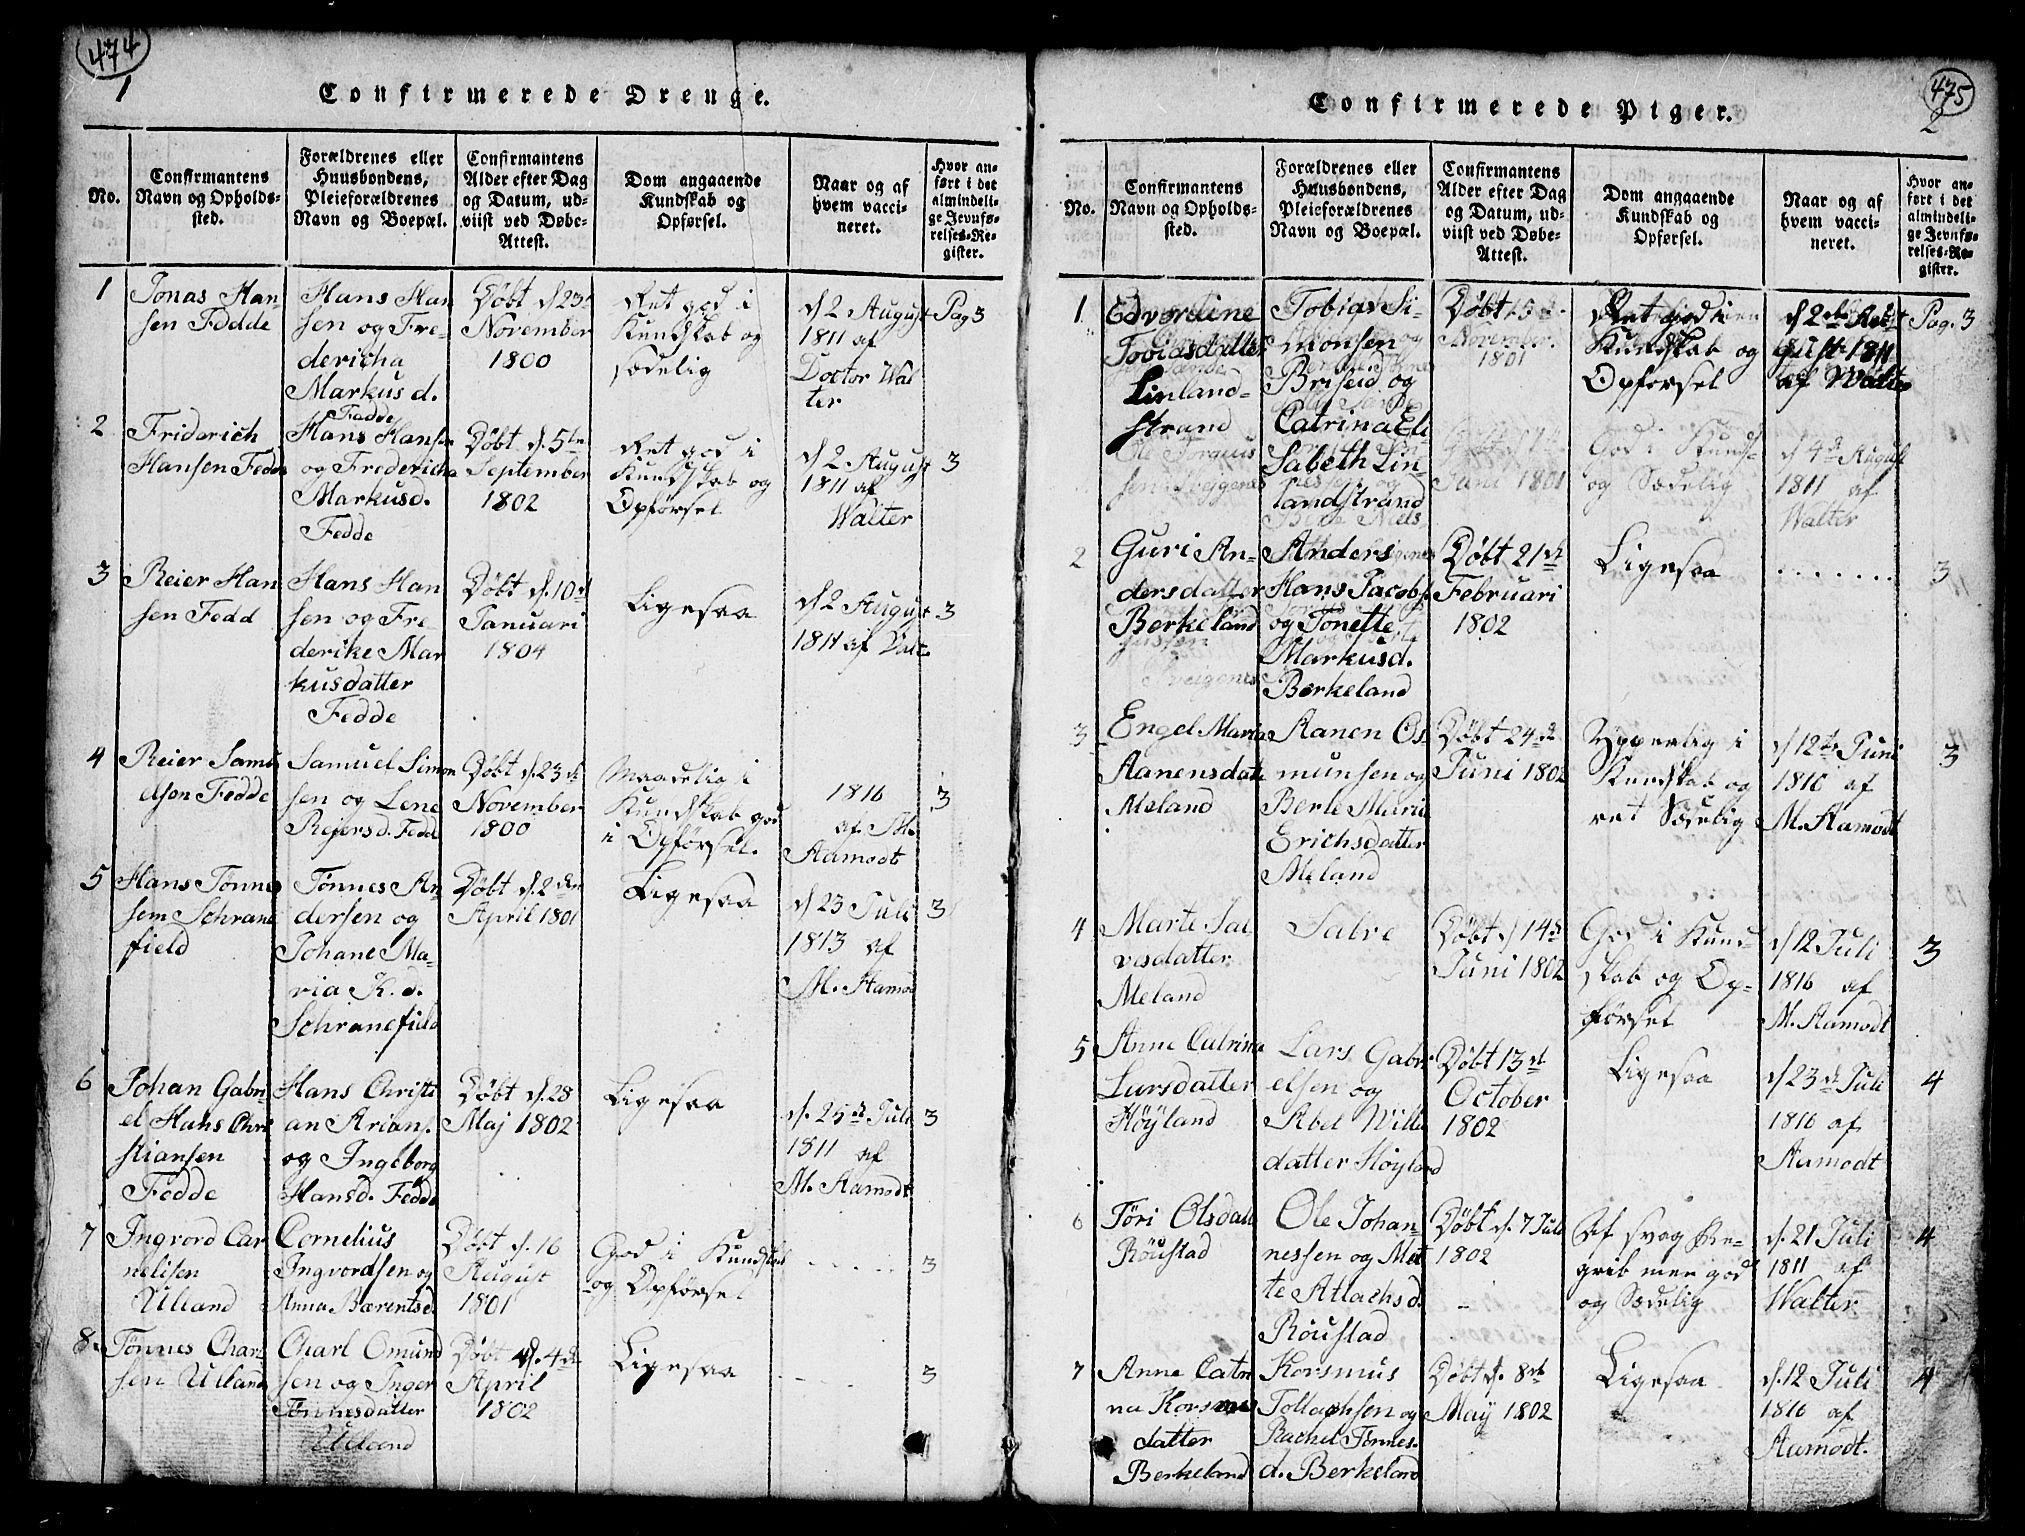 474
1
Confirmerede Drenge.
No.
Confirmantens
Navn og Opholds-
sted.
Forældrenes eller
Huusbondens,
Pleieforældrenes
Navn og Boepæl.
Confirmantens
Alder efter Dag
og Datum, ud-
viist ved Døbe-
Attest.
Dom angaaende
Kundskab og
Opførsel.
Naar og af
hvem vacci-
neret.
Hvor an-
ført i det
almindeli-
ge Jevnfø-
relses-Re-
gister.
1
Jonas Han
sen Fedde
Hans Han
sen og Fre-
dericha
Markus d.
Fedde
Døbt d. 23
November
1800
Ret god i
Kundskab og
sædelig
d 2 August
1811 af
Doctor Wal
ter
Pag 3
2
Friderich
Hansen Fedde
Hans Hansen
og Fredericha
Markusd.
Fedde
Døbt d. 5te
September
1802
Ret god i
Kundskab og
Opførsel
d 2 August
1811 af
Walter
3
3
Reier Han
sen Fedd
Hans Han
sen og Fre-
derike Mar
kusdatter
Fedde
Døbt d. 10d
Januari
1804
Ligesaa
d 2 August
1811 af
3
4
Reier Samu
elsen Fedde
Samuel Simon
sen og Lene
Reiersd. Fedde
Døbt d. 23d
November
1800
Maadelig i
Kundskab god
i Opførsel.
1816
af M.
Aamodt
3
5
Hans Tønnes
sem Schrane
field
Tønnes An
dersen og
Johane Ma-
ria K. d.
Schranefield
Døbt d. 2den
April 1801
Ligesaa
d 23 Juli
1813 af
M. Aamod
3
6
Johan Gabri
el Hans Chri
stiansen
Fedde
Hans Christi
an Arian.
og Ingeborg
Hansd. Fedde
Døbt d. 28
Maj 1802
Ligesaa
d. 25d Juli
1811 af
M. Aamodt
3
7
Ingvord Car
nelisen
Ulland
Cornelius
Ingvordsen og
Anna Bærentsd.
Døbt d. 16
August
1801
God i Kundskab
og Opførsel
. . . . .
3
8.
Tønnes Char
sen Ulland
Charl Omund
sen og Inger
Tønnesdatter
Ulland
Døbt d. 4d
April
1802
Ligesaa
. . . .
3
475
2
Confirmerede Piger.
No.
Confirmantens
Navn og Opholds-
sted.
Forældrenes eller
Huusbondens,
Pleieforældrenes
Navn og Boepæl.
Confirmantens
Alder efter Dag
og Datum, ud-
viist ved Døbe-
Attest.
Dom angaaende
Kundskab og
Opførsel.
Naar og af
hvem vacci-
neret.
Hvor an-
ført i det
almindeli-
ge Jevnfø-
relses-Re-
gister.
1
Edvordine
Tobiasdatter
Linland-
strand
Tobias Si-
monsen
Briseid og
Catrina Eli
Sabeth Lin-
landstrand
Døbt 15d
November
1801
Ret god i
Kundskab og
Opførsel
d 2de Au
gust 1811
af Walter
Pag. 3
2
Guri An-
dersdatter
Berkeland
Anders
Hans Jacobs
og Tonette
Markusd.
Berkeland
Døbt 21d
Februari
1802
Ligesaa
. . . . . . .
3
3
Engel Maria
Aanensdatt
Meland
Aanen Os-
munsen og
Berle Maria
Erichsdatter
Meland
Døbt 24d
Juni 1802
Ypperlig i
Kundskab og
ret Sædelig
d 12te Juni
1816 af
M. Aamodt
3
4
Marte Sal
vesdatter
Meland
Salve
Døbt d 14d
Juni 1802
God i Kund
skab og Op-
førsel
d 12 Juli
1816 af
M. Aamodt
3
5
Anne Catrina
Larsdatter
Høÿland
Lars Gabri
elsen og
Abel Wille
datter Høyland
Døbt 13d
October
1802
Ligesaa
d 23d Juli
1816 af
Aamodt
4
6
Tøri Olsdatt
Røustad
Ole Johan-
nessen og Met
te Atlachsd.
Røustad
Døbt d. 7 Juli
1802
Af svag Be-
greb men god
og Sædelig
d. 21 Juli
1811 af
Walter
4
7
Anne Catri
na Korsmus
datter
Berkeland
Korsmus
Tollachsen og
Rachel Tønnes-
d. Berkeland
Døbt d. 8d
Maÿ 1802
Ligesaa
d. 12 Juli
1816 af
Aamodt.
4